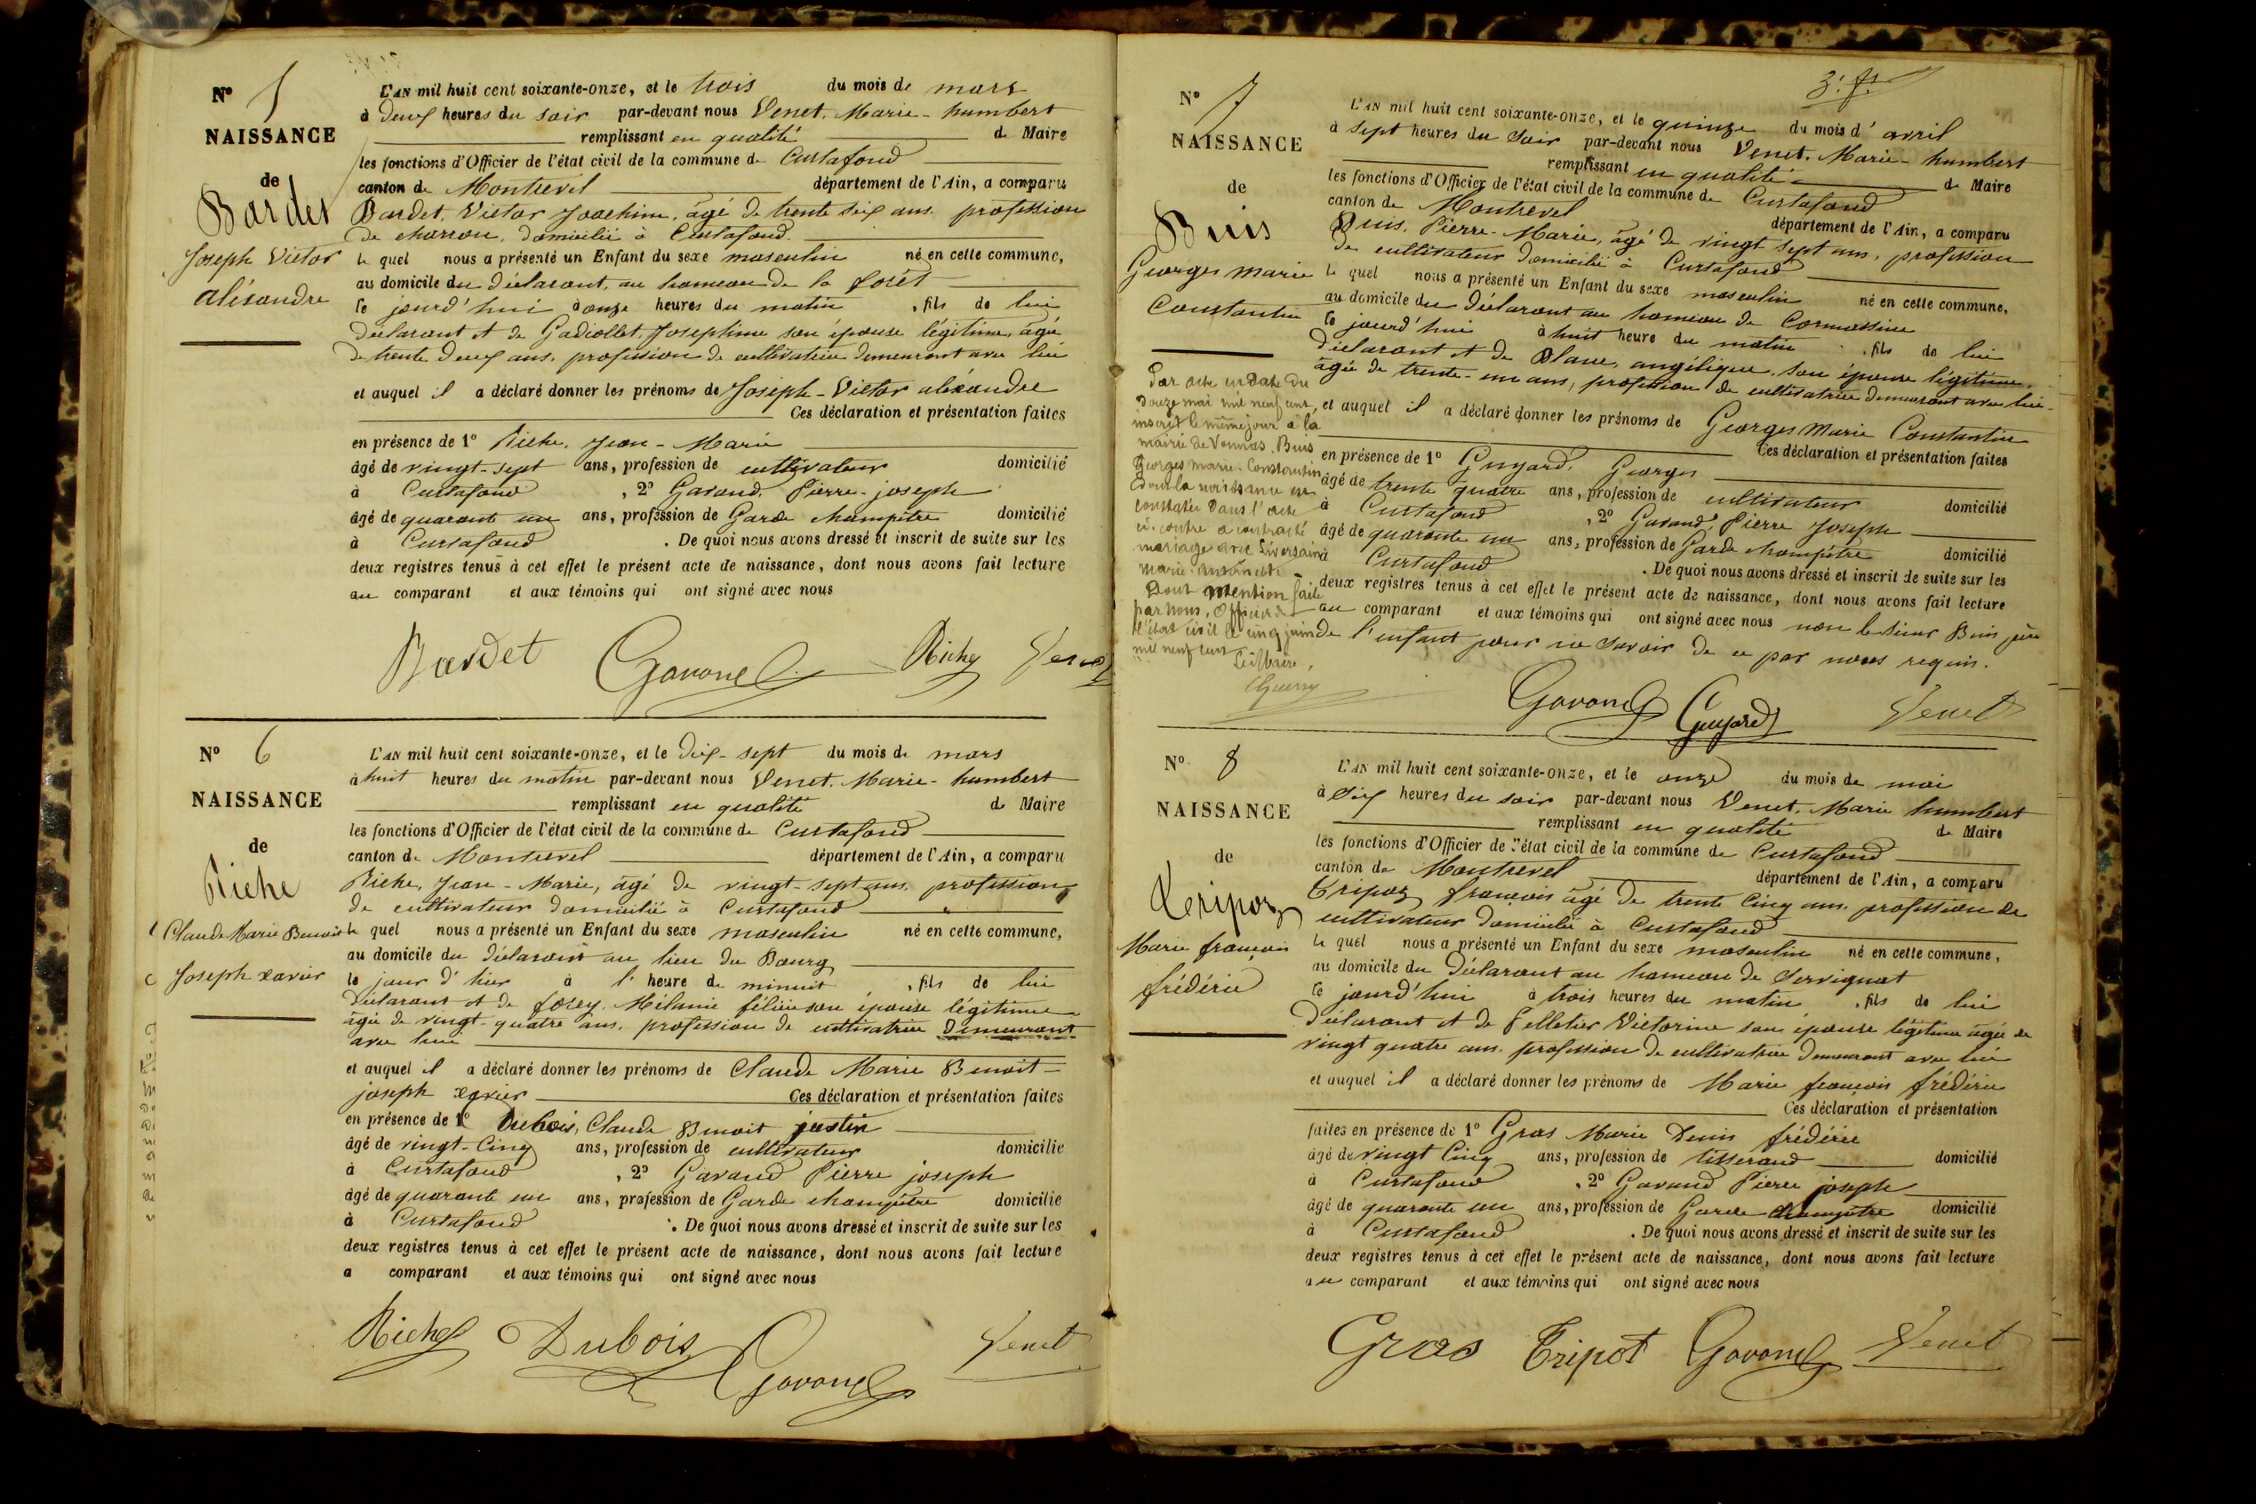 N° 5
NAISSANCE
de
Bardet
Joseph Victor
aléxandre
L'AN mil huit cent soixante-onze, et le trois du mois de mars
à Deux heures du soir par-devant nous Venet, Marie-humbert
remplissant en qualité de Maire
les fonctions d'Officier de l'état civil de la commune de Curtafond
canton de Montrevel département de l'Ain, a comparu
Bardet, Victor Joachim, âgé de trente six ans, profession
de charron, domicilié à Curtafond
le quel nous a présenté un Enfant du sexe masculin né en cette commune,
au domicile du déclarant, au hameau de la forêt
ce jourd'hui à onze heures du matin, fils de lui
déclarant et de Gadiollet, Joséphine son épouse légitime, agée
de trente deux ans, profession de cultivatrice demeurant avec lui
et auquel il a déclaré donner les prénoms de Joseph-Victor aléxandre
Ces déclaration et présentation faites
en présence de 1° Riche, Jean-Marie
âgé de vingt-sept ans, profession de cultivateur domicilié
à Curtafond, 2° Gavand, Pierre-joseph
âgé de quarante un ans, profession de Garde champêtre domicilié
à Curtafond. De quoi nous avons dressé et inscrit de suite sur les
deux registres tenus à cet effet le présent acte de naissance, dont nous avons fait lecture
au comparant et aux témoins qui ont signé avec nous
Bardet Gavand Riche Venet
N° 6
NAISSANCE
de
Riche
Claude Marie Benoit
Joseph xavier
L'AN mil huit cent soixante-onze, et le dix-sept du mois de mars
à huit heures du matin par-devant nous Venet, Marie-humbert
remplissant en qualité de Maire
les fonctions d'Officier de l'état civil de la commune de Curtafond
canton de Montrevel département de l'Ain, a comparu
Riche, Jean-Marie, âgé de vingt-sept ans, profession
de cultivateur domicilié à Curtafond
le quel nous a présenté un Enfant du sexe masculin né en cette commune,
au domicile du déclarant au lieu du Bourg
le jour d'hier à l'heure de minuit, fils de lui
déclarant et de forey, Mélanie félicie son épouse légitime
âgée de vingt-quatre ans, profession de cultivatrice demeurant
avec lui
et auquel il a déclaré donner les prénoms de Claude Marie Benoit-
joseph xavier Ces déclaration et présentation faites
en présence de 1° Dubois, Claude Benoit justin
âgé de vingt-Cinq ans, profession de cultivateur domicilié
à Curtafond, 2° Gavand Pierre joseph
âgé de quarante un ans, profession de Garde champêtre domicilié
à Curtafond. De quoi nous avons dressé et inscrit de suite sur les
deux registres tenus à cet effet le présent acte de naissance, dont nous avons fait lecture
a comparant et aux témoins qui ont signé avec nous
Riche Dubois Gavand Venet
N° 7
NAISSANCE
de
Buis
Georges Marie
Constantin
Par acte en date du
douze mai mil neuf cent,
inscrit le même jour à la
mairie de Vonnas, Buis
Georges Marie Constantin
dont la naissance est
constatée dans l'acte
ci-contre a contracté
mariage avec
Marie Antoinette
Dont mention faite
par nous, Officier de
l'état civil le cinq juin
mil neuf cent
Le Maire,
Guerry
3e f.
L'AN mil huit cent soixante-onze, et le quinze du mois d'avril
à sept heures du soir par-devant nous Venet, Marie-humbert
remplissant en qualité de Maire
les fonctions d'Officier de l'état civil de la commune de Curtafond
canton de Montrevel département de l'Ain, a comparu
Buis, Pierre-Marie, âgé de vingt sept ans, profession
de cultivateur domicilié à Curtafond
le quel nous a présenté un Enfant du sexe masculin né en cette commune,
au domicile du déclarant au hameau de Cormassine
ce jourd'hui à huit heure du matin, fils de lui
déclarant et de Blanc, angélique, son épouse légitime,
âgée de trente-un ans, profession de cultivatrice demeurant avec lui
et auquel il a déclaré donner les prénoms de Georges Marie Constantin
Ces déclaration et présentation faites
en présence de 1° Guyard, Georges
âgé de trente quatre ans, profession de cultivateur domicilié
à Curtafond, 2° Gavand, Pierre Joseph
âgé de quarante un ans, profession de Garde champêtre domicilié
à Curtafond. De quoi nous avons dressé et inscrit de suite sur les
deux registres tenus à cet effet le présent acte de naissance, dont nous avons fait lecture
au comparant et aux témoins qui ont signé avec nous non le sieur Buis père
de l'enfant pour ne savoir de ce par nous requis.
Gavand Guyard Venet
N° 8
NAISSANCE
de
Teripoz
Marie françois
frédéric
L'AN mil huit cent soixante-onze, et le onze du mois de mai
à Six heures du soir par-devant nous Venet, Marie humbert
remplissant en qualité de Maire
les fonctions d'Officier de l'état civil de la commune de Curtafond
canton de Montrevel département de l'Ain, a comparu
Tripoz françois âgé de trente Cinq ans, profession de
cultivateur domicilié à Curtafond
le quel nous a présenté un Enfant du sexe masculin né en cette commune,
au domicile du déclarant au hameau de Servignat
ce jourd'hui à trois heures du matin, fils de lui
déclarant et de Pelletier Victorine son épouse légitime âgée de
vingt quatre ans, profession de cultivatrice demeurant avec lui
et auquel il a déclaré donner les prénoms de Marie françois frédéric
Ces déclaration et présentation
faites en présence de 1° Gras Marie Denis frédéric
âgé de vingt Cinq ans, profession de tisserand domicilié
à Curtafond, 2° Gavand Pierre joseph
âgé de quarante un ans, profession de Garde champêtre domicilié
à Curtafond. De quoi nous avons dressé et inscrit de suite sur les
deux registres tenus à cet effet le présent acte de naissance, dont nous avons fait lecture
au comparant et aux témoins qui ont signé avec nous
Gras Tripot Gavand Venet